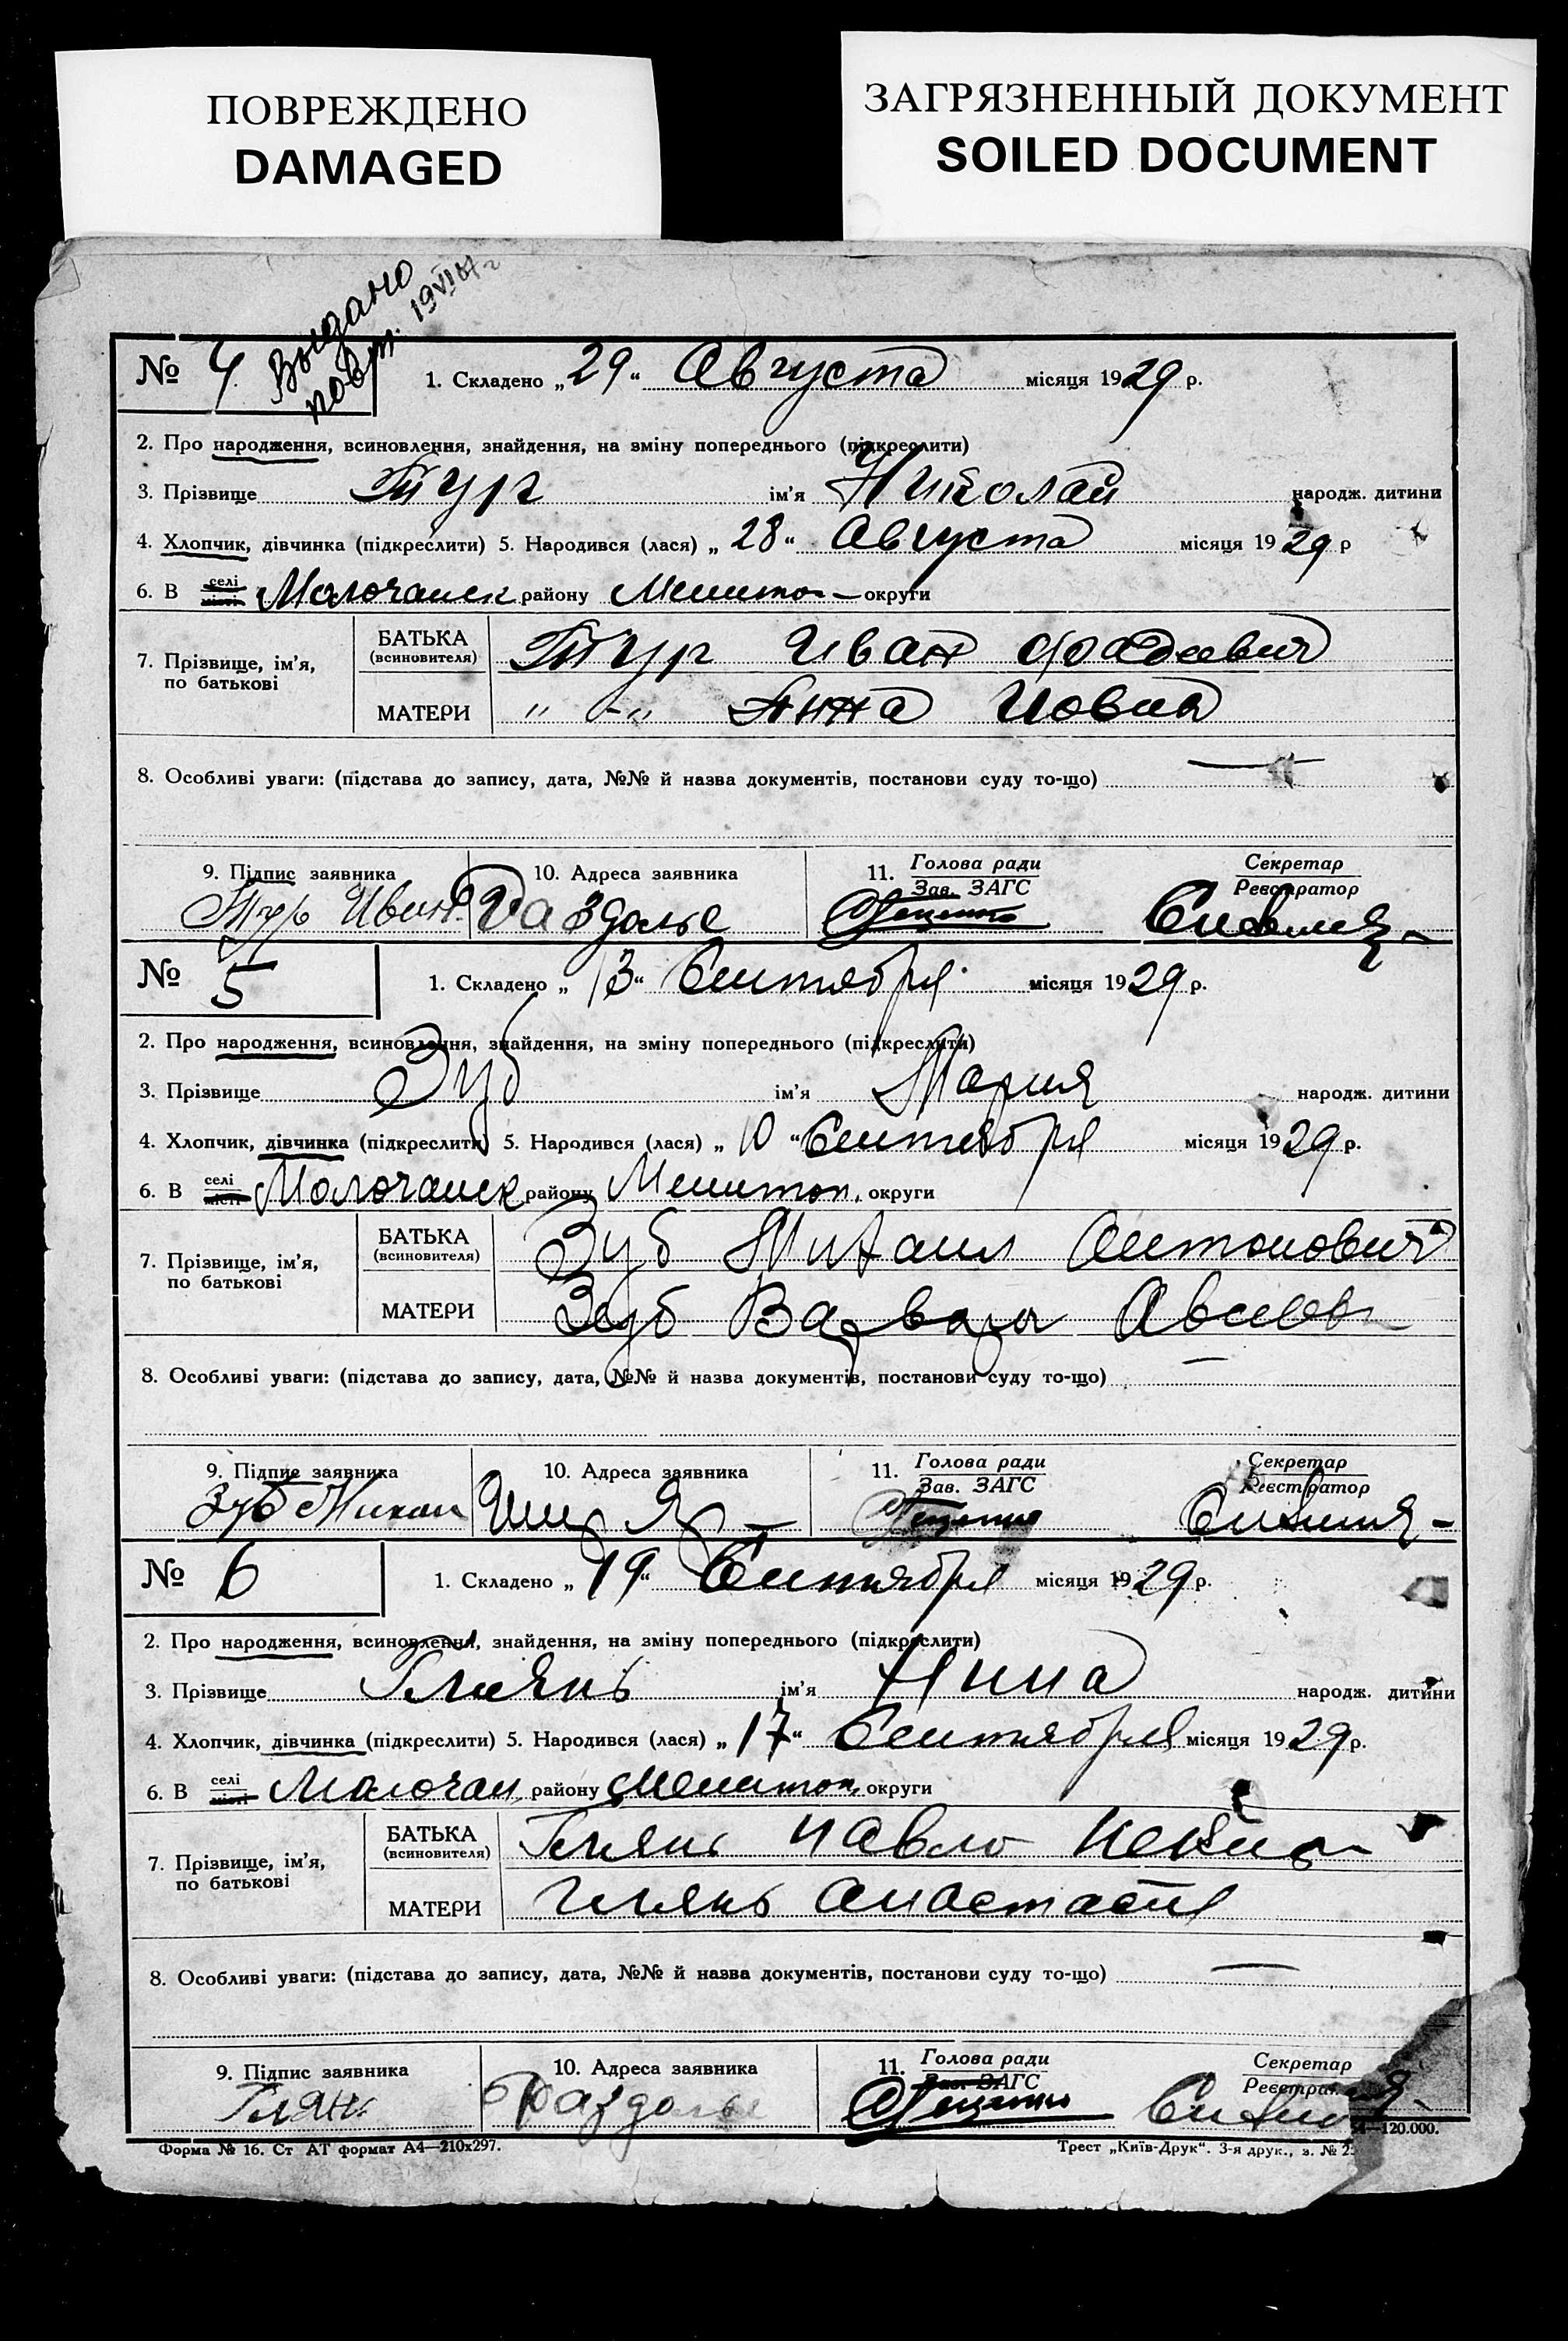 ПОВРЕЖДЕНО
DAMAGED
ЗАГРЯЗНЕННЫЙ ДОКУМЕНТ
SOILED DOCUMENT
Выдано
повт. 19 VI
№ 4
1. Складено „29“ Августа місяця 1929 р.
2. Про народження, всиновлення, знайдення, на зміну попереднього (підкреслити)
3. Прізвище Тур ім'я Николай народж. дитини
4. Хлопчик, дівчинка (підкреслити) 5. Народився (лася) „28“ Августа місяця 1929 р
6. В селі місті Молочанск району Мелитоп- округи
7. Прізвище, ім'я, по батькові
БАТЬКА (всиновителя) Тур Иван Фадеевич
МАТЕРИ " -" Анна
8. Особливі уваги: (підстава до запису, дата, №№ й назва документів, постанови суду то-що) —
9. Підпис заявника
10. Адреса заявника
11. Голова ради
Зав. ЗАГС
Секретар
Реєстратор
Тур Иван Раздолье
№ 5
1. Складено „13“ Сентября місяця 1929 р.
2. Про народження, всиновлення, знайдення, на зміну попереднього (підкреслити)
3. Прізвище Зуб ім'я Мария народж. дитини
4. Хлопчик, дівчинка (підкреслити) 5. Народився (лася) „10“ Сентября місяця 1929 р.
6. В селі місті Молочанск району Мелитоп. округи
7. Прізвище, ім'я, по батькові
БАТЬКА (всиновителя) Зуб Михаил Антонович
МАТЕРИ Зуб Варвара
8. Особливі уваги: (підстава до запису, дата, №№ й назва документів, постанови суду то-що) —
9. Підпис заявника
10. Адреса заявника
11. Голова ради
Зав. ЗАГС
Секретар
Реєстратор
Зуб Михаил
№ 6
1. Складено „19“ Сентября місяця 1929 р.
2. Про народження, всиновлення, знайдення, на зміну попереднього (підкреслити)
3. Прізвище ім'я Нина народж. дитини
4. Хлопчик, дівчинка (підкреслити) 5. Народився (лася) „17“ Сентября місяця 1929 р.
6. В селі місті Молочан. району Мелитоп. округи
7. Прізвище, ім'я, по батькові
БАТЬКА (всиновителя) Павло
МАТЕРИ Анастасия
8. Особливі уваги: (підстава до запису, дата, №№ й назва документів, постанови суду то-що) —
9. Підпис заявника
10. Адреса заявника
11. Голова ради
Зав. ЗАГС
Секретар
Реєстра
Раздолье
Форма № 16. Ст АТ формат А4—210х297.
Трест „Київ-Друк“. 3-я друк., з. № 2
—120.000.